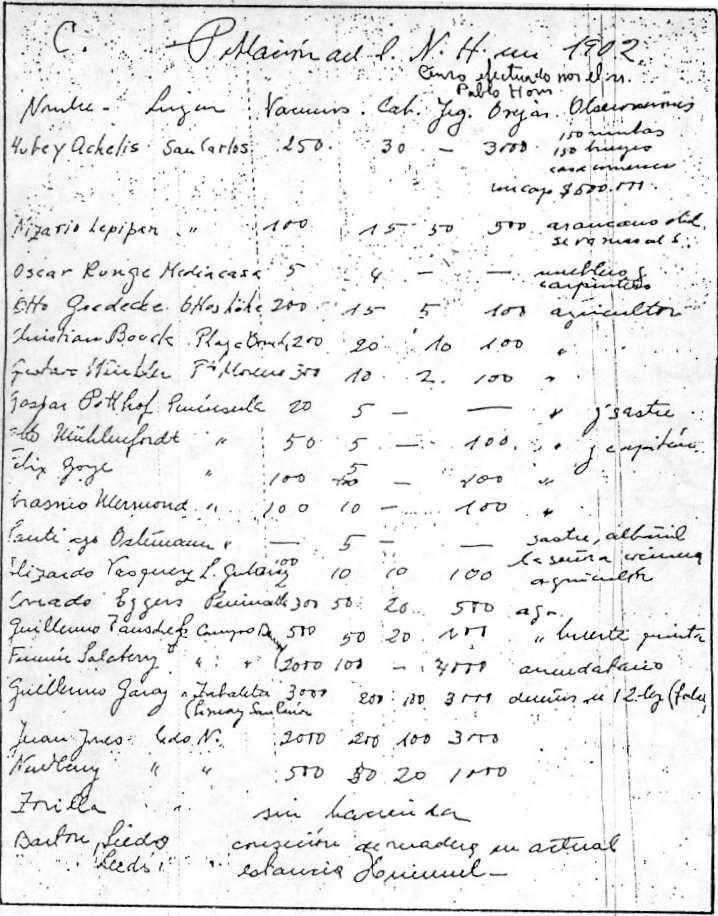 C. Población del L. N. H. en 1902
Censo efectuado por el sr.
Pablo Horn
Nombre - Lugar Vacunos. Cab. Yeg. Ovejas. Observaciones
Hube y Achelis San Carlos 250. 30 - 3000 150 mulas
150 bueyes
casa comercio
con cap $500.000.
Nizario Lepipan " 100 15 50 500 araucano
se va mas al S.
Oscar Runge Mediacasa 5 4 - - muebles y
carpintero
Otto Goedecke 200 15 5 100 agricultor
Christian Boock Playa 200 20 10 100 "
Gustavo Winkler Pto Moreno 300 10 2 100 "
Gaspar Potthof Península 20 5 - - " y sastre
Otto Mühlenfordt " 50 5 - 100 " y capitán
Felix Goye " 100 5 - 200 "
Erasmo Mermoud " 100 10 - 100 "
Santiago Ostimann " - 5 - - sastre, albañil
la señora
Elizardo Vasquez L. Gutierrez 100 10 10 100 agricultor
Conrado Eggers Peninsula 300 50 20 500 agr.
Guillermo Tauschek Campo 500 50 20 100 " huerta quinta
Fermín Salaberry " " 2000 100 - 4000 arrendatario
Guillermo Garay " Zabaleta 3000 200 100 3000 dueños de 12 leg
Juan Jones Lado N. 2000 200 100 3000
Newbery " " 500 50 20 1000
Zorilla " sin hacienda
Barton, Leeds concesión de madera en actual
Leeds, estancia Huemul -